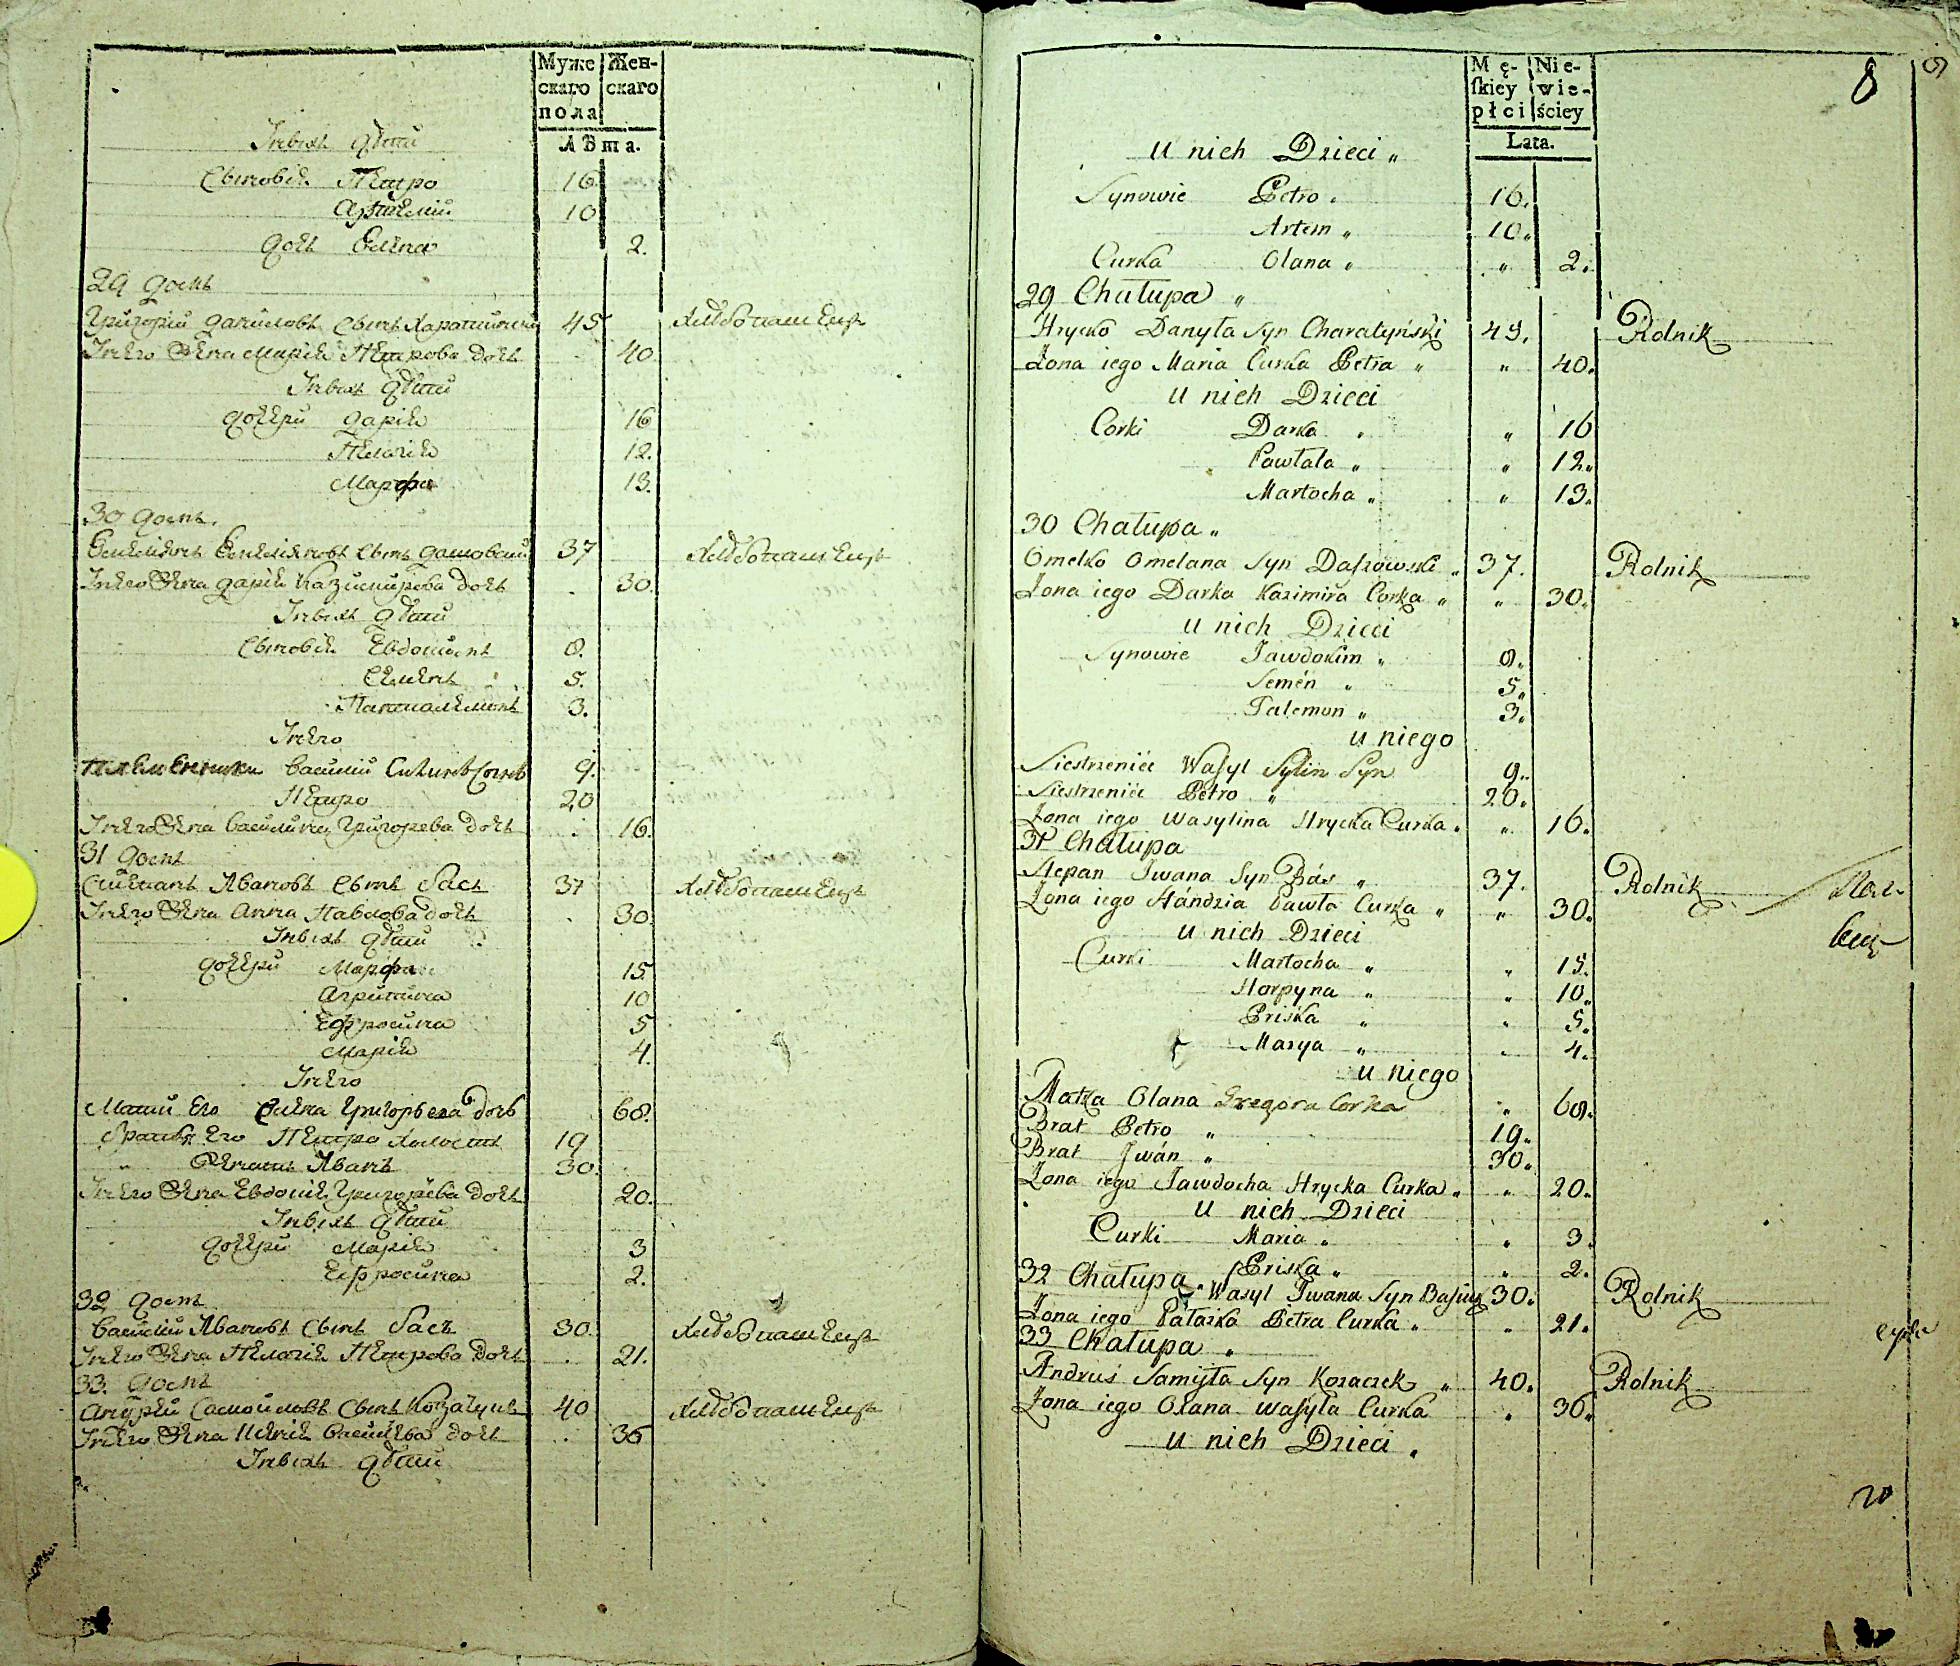 Муже Жен-
скаго скаго
пола
Лѣта.
Унихъ дѣти
Сыновья Петро 16
Артемій 10
дочь Елена 2.
29 домъ
Григорій Даниловъ сынъ Харатинскій 45 Хлебопашецъ
Унего жена Марія Петрова дочь 40
Унихъ дѣти
дочери Дарія 16
Пелагія 12.
Марфа 13.
30 домъ.
Емельянъ Емельяновъ сынъ Дашовскій 37 Хлебопашецъ
Унего жена Дарія Казимирова дочь 30.
Унихъ дѣти
Сыновья Евдокимъ 8.
Семенъ 5.
Панталемонъ 3.
Унего
племянники Василій Силинъ сынъ 9.
Петро 20
Унего жена Василина Григорева дочь 16.
31 домъ
Степанъ Ивановъ сынъ Басъ 37 Хлебопашецъ
Унего жена Анна Павлова дочь 30.
Унихъ дѣти
дочери Марфа 15
Агрипина 10
Ефросина 5
Марія 4.
Унего
Мати его Елена Григорьева дочь 68.
Братья его Петро холостъ 19
" Женатъ Иванъ 30.
Унего жена Евдокія Григорева дочь 20.
Унихъ дѣти
дочери Марія 3
Ефросина 2.
32 домъ
Василій Ивановъ сынъ Басъ 30. Хлебопашецъ
Унего жена Пелагія Петрова дочь 21.
33. домъ
Андрей Самойловъ сынъ Козачукъ 40 Хлебопашецъ
Унего жена Ксенія Василева дочь 36
Унихъ дѣти
8
9
Mę- Nie-
ſkiey wie-
płci ściey
Lata.
U nich Dzieci „
Synowie Petro „ 16.
Artem „ 10.
Curka Olana „ „ 2.
29 Chałupa „
Hrycko Danyła Syn Charatyński 45. Rolnik
Żona iego Maria Curka Petra „ „ 40.
U nich Dzieci
Corki Darka „ „ 16
Pawłała „ „ 12„
Martocha „ „ 13.
30 Chałupa „
Omelko Omelana Syn Daszowski „ 37. Rolnik
Żona iego Darka Kazimira Corka „ „ 30.
U nich Dzieci
Synowie Jawdokim „ 8.
Semén „ 5„
Palemon „ 3.
u niego
Siestrzeniéc Wasyl Sylin Syn 9..
Siestrzeniéc Petro „ 20.
Żona iego Wasylina Hrycka Curka „ „ 16.
31 Chałupa
Stepan Iwana Syn Bás „ 37. Rolnik
Żona iego Hándzia Pawła Curka „ „ 30.
U nich Dzieci
Curki Martocha „ „ 15.
Horpyna „ „ 10.
Priska „ „ 5.
Marya „ „ 4.
u niego
Matka Olana Gregora Corka „ 68.
Brat Petro „ 19.
Brat Iwán „ 30„
Żona iego Jawdocha Hrycka Curka „ „ 20.
U nich Dzieci
Curki Maria „ „ 3.
Priska „ „ 2.
32 Chałupa „ Wasyl Iwana Syn 30. Rolnik
Żona iego Pałażka Petra Curka „ „ 21.
33 Chałupa „
Andruś Samiyła Syn Kozaczek „ 40. Rolnik
Żona iego Oxana Wasyla Curka „ 36.
U nich Dzieci „